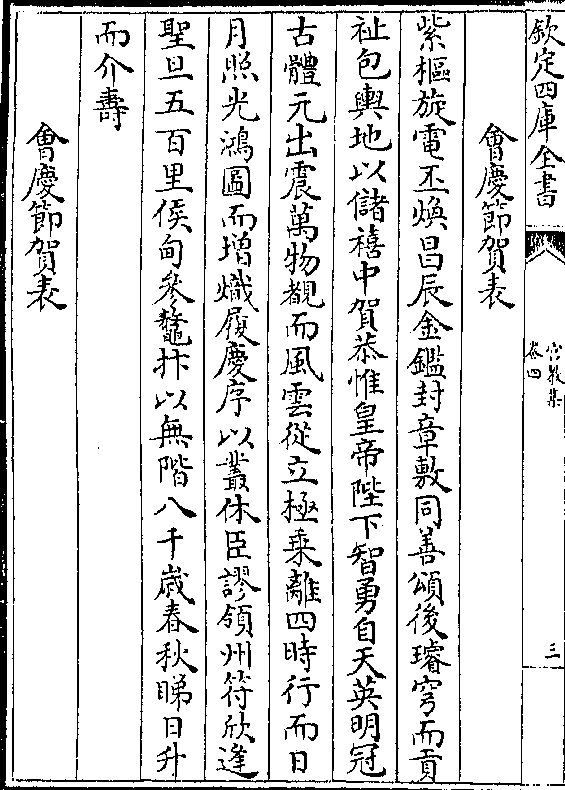 欽定四庫全書
宫教集
卷四
三
會慶節賀表
紫樞旋電丕煥昌辰金鑑封章敷同善頌後璿穹而貢
祉包輿地以儲禧中賀恭惟皇帝陛下智勇自天英明冠
古體元出震萬物覩而風雲從立極乗離四時行而日
月照光鴻圖而增熾履慶序以叢休臣謬領州符欣逢
聖旦五百里侯甸叅鼇抃以無階八千歲春秋睇日升
而介壽
會慶節賀表